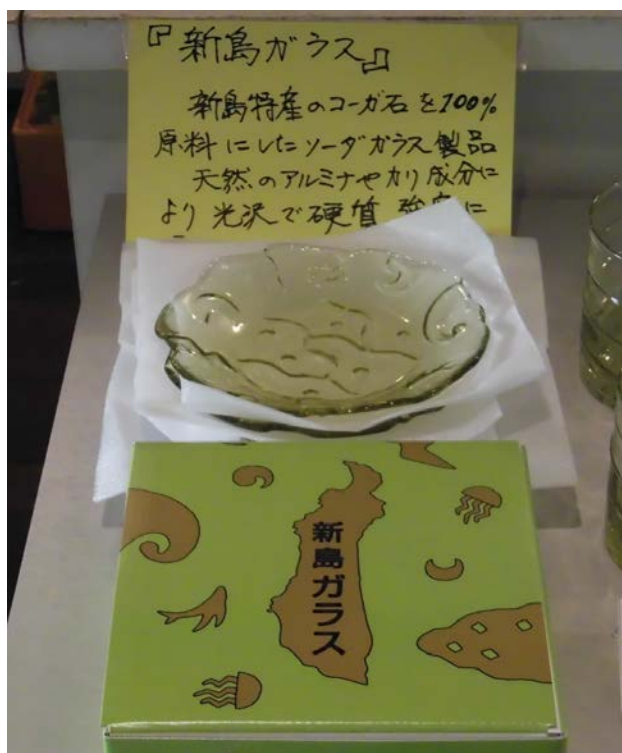 『新島ガラス』
新島特産のコーガ石を100%
原料にしたソーダガラス製品
天然のアルミナやカリ成分に
より光沢で硬質
に
新島ガラス